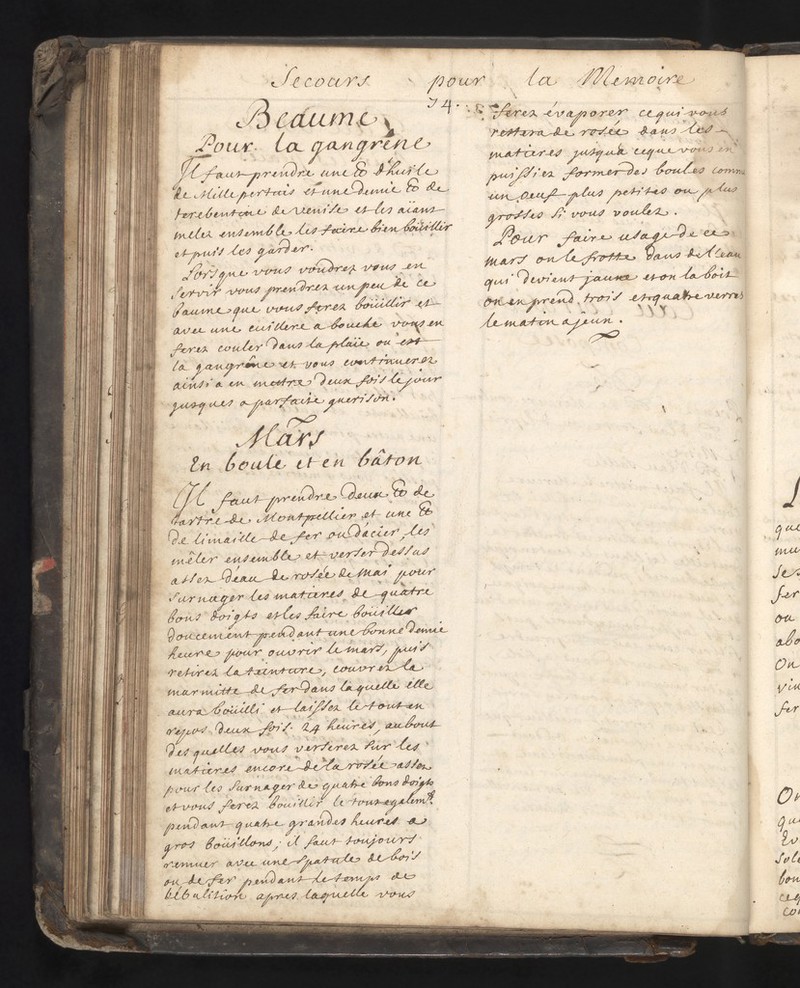 Secours pour la Memoire
74.
Beaume
Pour la gangréne
Il faut prendre une ℔ d'huile
de Millepertuis et une demie ℔ de
terebentine de venise et les aïant
mélez ensemble les faire bien boüillir
et puis les garder.
Lorsque vous voudrez vous en
servir vous prendrez un peu de ce
baume que vous ferez boüillir et
avec une cuillere a bouche vous en
ferez couler dans la plaïe ou est
la gangréne et vous continuerez
ainsi a en mettre deux fois le jour
jusques a parfaite guerison.
Mars
En boule et en bâton
Il faut prendre deux ℔ de
tartre de Montpellier et une ℔
de limaille de fer ou d'acier, les
mêler ensemble et verser dessus
assez d'eau de rosée de mai pour
surnager les matieres de quatre
bons doigts et les faire boüiller
doucement pendant une bonne demie
heure pour ouvrir le mars, puis
retirez la teinture, couvrez la
marmitte de fer dans laquelle elle
aura boüilli et laissez le tout en
repos deux fois 24 heures, au bout
des quelles vous verserez sur les
matieres encore de la rosée assez
pour les surnager de quatre bons doigts
et vous ferez boüillir le tout egalemt.
pendant quatre grandes heures a
gros boüillons; il faut toujours
remuer avec une spatule de bois
ou de fer pendant le temps de
l'ébulition apres laquelle vous
ferez évaporer ce qui vous
restera de rosée dans les
matieres jusqu'a ce que vous en
puissiez former des boules comme
un oeuf plus petites ou plus
grosses si vous voulez.
Pour faire usage de ce
mars on le frotte dans de l'eau
qui devient jaune et on la boit
on en prend trois et quatre verres
le matin a jeun.
que
mu
ses
fer
ou
abo
On
vin
fer
On
qu
Ev
sole
bou
ce q
co